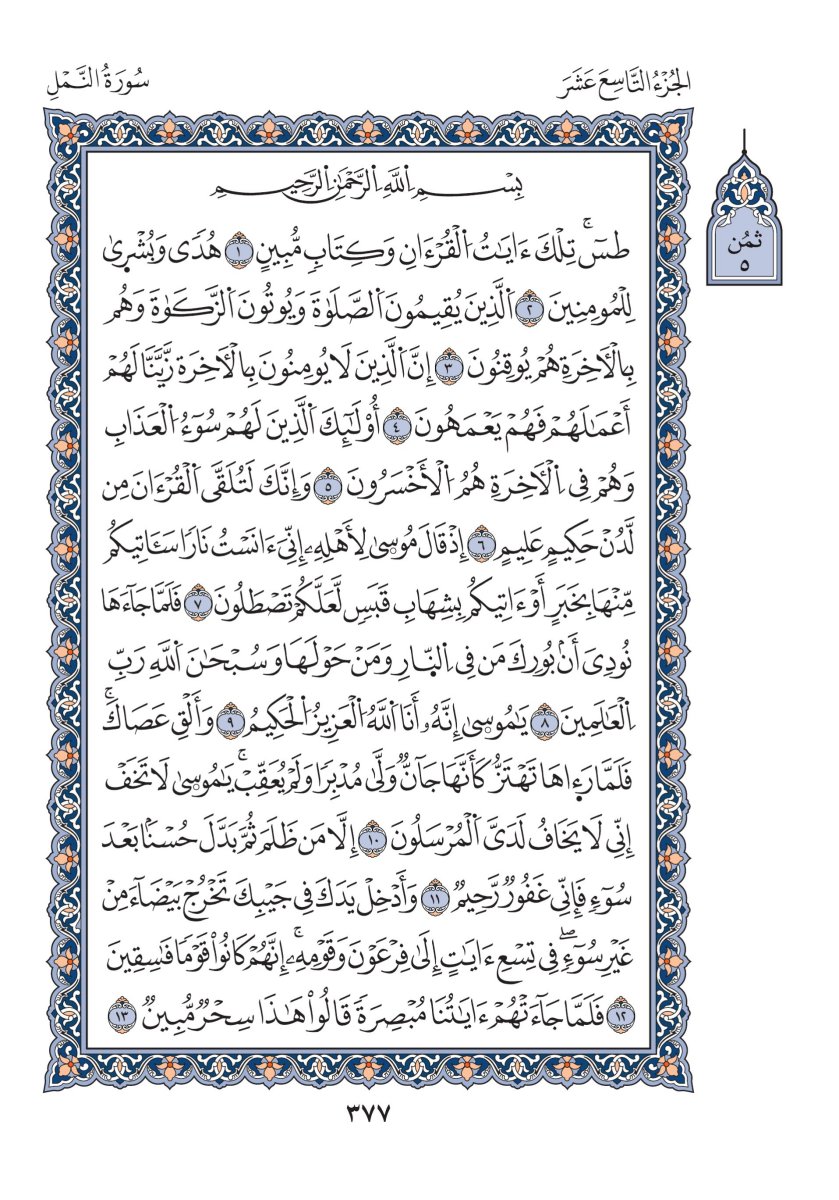 الجُزْءُ التَّاسِعَ عَشَرَ
سُورَةُ النَّمْلِ
ثمُن
٥
بِسْمِ اِللَّهِ اِلرَّحْمَٰنِ اِلرَّحِيمِ
طسٓۚ تِلْكَ ءَايَٰتُ اُلْقُرْءَانِ وَكِتَابٖ مُّبِينٍ ١ هُدىٗ وَبُشْرىٰ
لِلْمُومِنِينَ ٢ اَلذِينَ يُقِيمُونَ اَلصَّلَوٰةَ وَيُوتُونَ اَلزَّكَوٰةَ وَهُم
بِالْأَخِرَةِ هُمْ يُوقِنُونَ ٣ إِنَّ اَلذِينَ لَا يُومِنُونَ بِالْأَخِرَةِ زَيَّنَّا لَهُمْ
أَعْمَٰلَهُمْ فَهُمْ يَعْمَهُونَ ٤ أُوْلَٰٓئِكَ اَلذِينَ لَهُمْ سُوٓءُ اُلْعَذَابِ
وَهُمْ فِي اِلْأَخِرَةِ هُمُ اُلْأَخْسَرُونَ ٥ وَإِنَّكَ لَتُلَقَّى اَلْقُرْءَانَ مِن
لَّدُنْ حَكِيمٍ عَلِيمٍ ٦ إِذْ قَالَ مُوسىٰ لِأَهْلِهِۦٓ إِنِّيَ ءَانَسْتُ نَاراٗ سَـَٔاتِيكُم
مِّنْهَا بِخَبَرٍ أَوَ ءَاتِيكُم بِشِهَابِ قَبَسٖ لَّعَلَّكُمْ تَصْطَلُونَ ٧ فَلَمَّا جَآءَهَا
نُودِيَ أَنۢ بُورِكَ مَن فِي اِلنّ۪ارِ وَمَنْ حَوْلَهَا وَسُبْحَٰنَ اَللَّهِ رَبِّ
اِلْعَٰلَمِينَ ٨ يَٰمُوسىٰٓ إِنَّهُۥٓ أَنَا اَللَّهُ اُلْعَزِيزُ اُلْحَكِيمُ ٩ وَأَلْقِ عَصَاكَۚ
فَلَمَّا رَءِاهَا تَهْتَزُّ كَأَنَّهَا جَآنّٞ وَلَّىٰ مُدْبِراٗ وَلَمْ يُعَقِّبْۚ يَٰمُوسىٰ لَا تَخَفْ
إِنِّي لَا يَخَافُ لَدَيَّ اَلْمُرْسَلُونَ ١٠ إِلَّا مَن ظَلَمَ ثُمَّ بَدَّلَ حُسْناَۢ بَعْدَ
سُوٓءٖ فَإِنِّي غَفُورٞ رَّحِيمٞ ١١ وَأَدْخِلْ يَدَكَ فِي جَيْبِكَ تَخْرُجْ بَيْضَآءَ مِنْ
غَيْرِ سُوٓءٖۖ فِي تِسْعِ ءَايَٰتٍ إِلَىٰ فِرْعَوْنَ وَقَوْمِهِۦٓۚ إِنَّهُمْ كَانُواْ قَوْماٗ فَٰسِقِينَ
١٢ فَلَمَّا جَآءَتْهُمُۥٓ ءَايَٰتُنَا مُبْصِرَةٗ قَالُواْ هَٰذَا سِحْرٞ مُّبِينٞ ١٣
٣٧٧